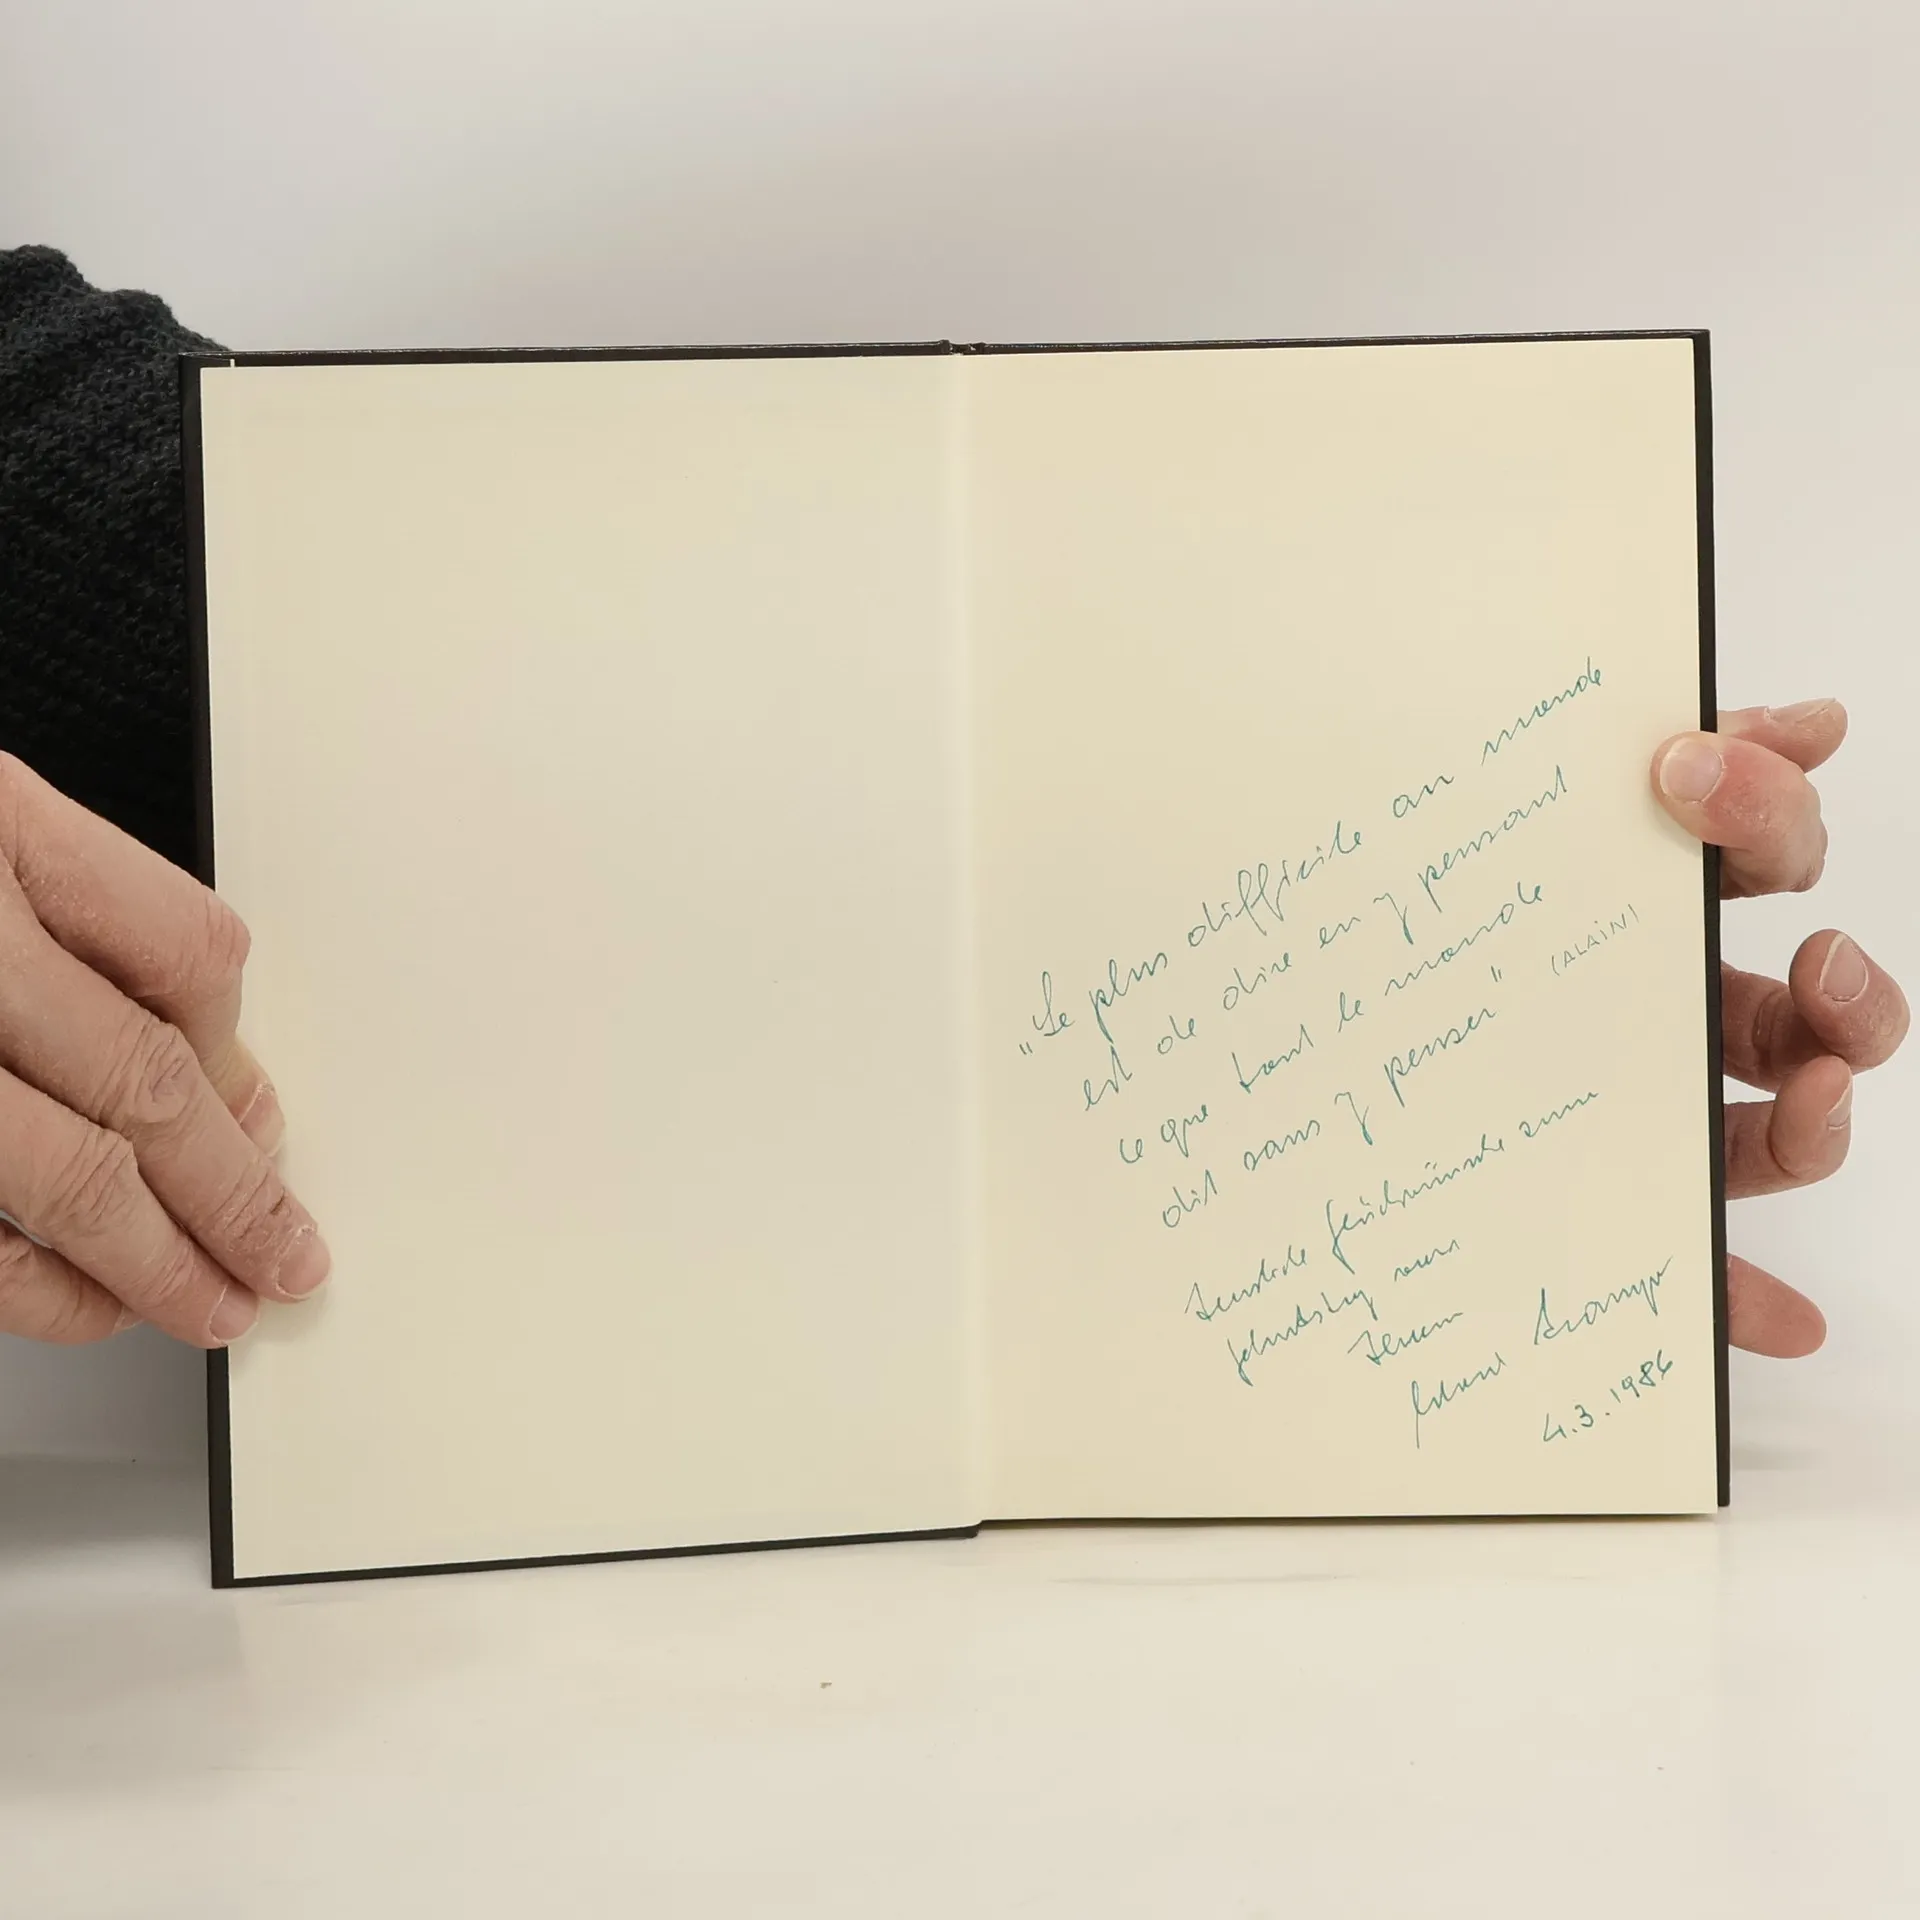 "Le plus difficile au monde
est de dire en y pensant
ce que tout le monde
dit sans y penser" (ALAIN)
Herzliche Glückwünsche zum
Geburtstag von
Ihrem
4.3.1986